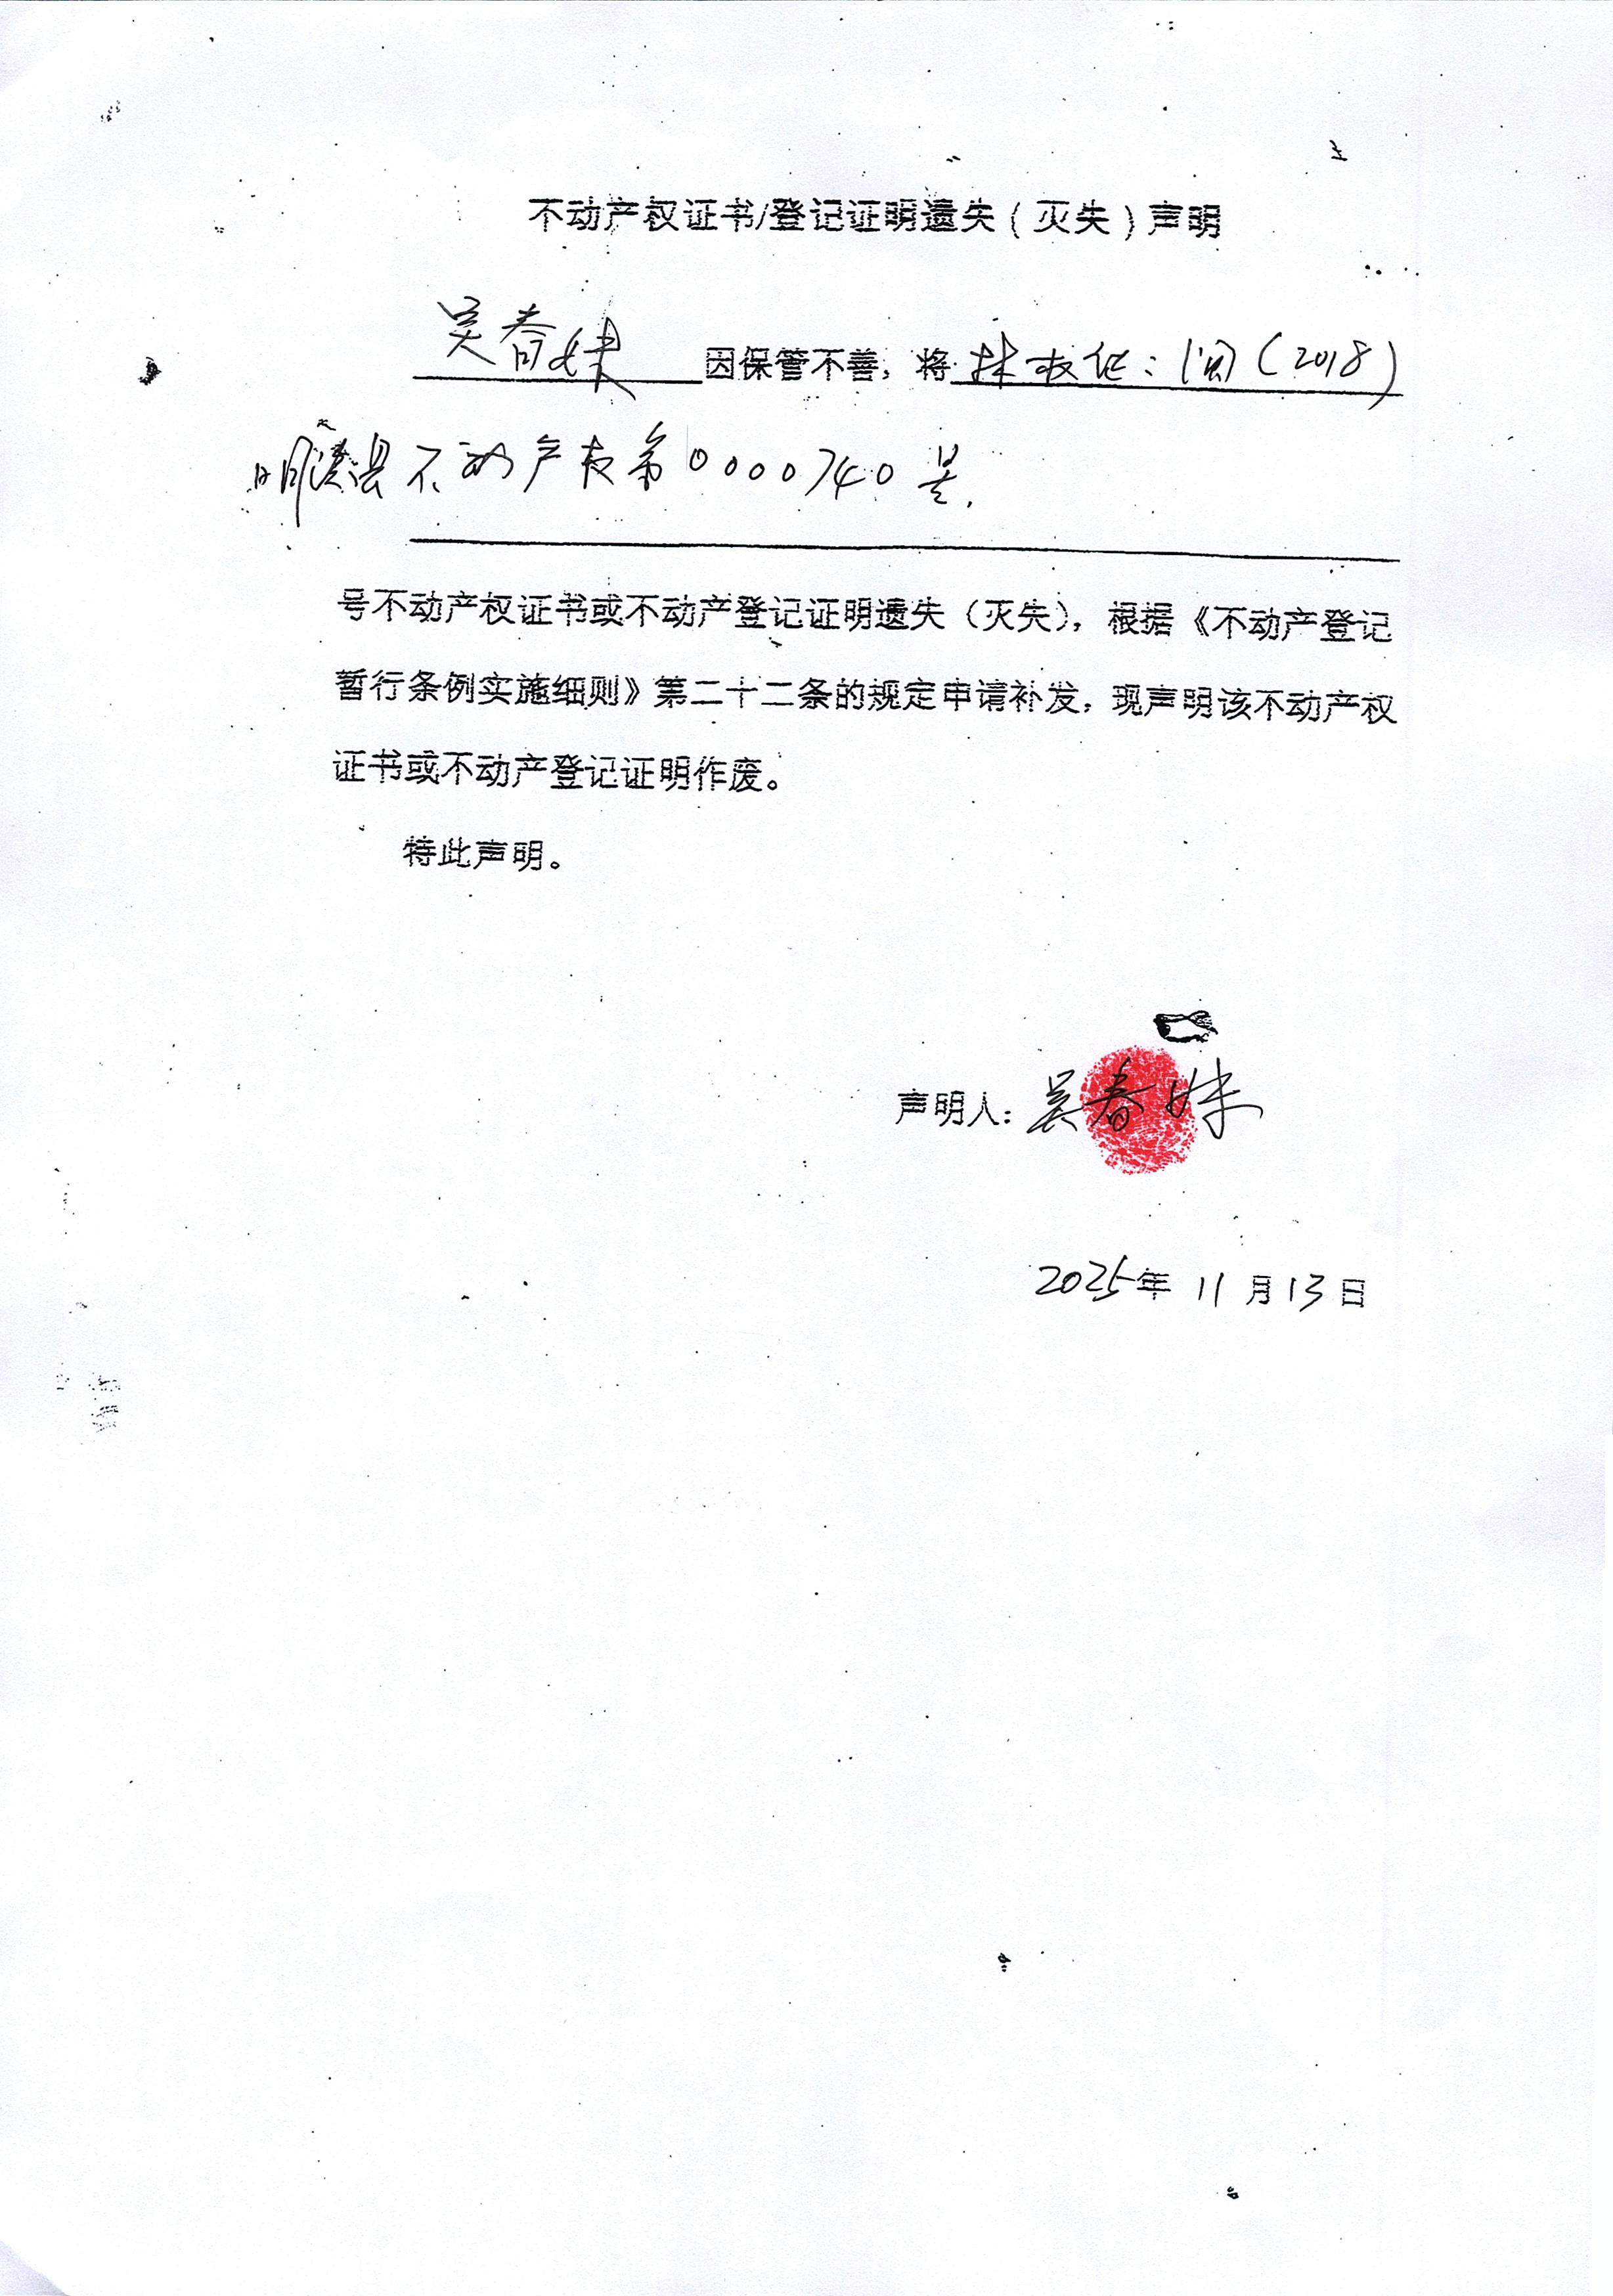 不动产权证书/登记证明遗失（灭失）声明
吴春妹因保管不善，将林权证：闽（2018）
明溪县不动产权第0000740号.
号不动产权证书或不动产登记证明遗失（灭失），根据《不动产登记
暂行条例实施细则》第二十二条的规定申请补发，现声明该不动产权
证书或不动产登记证明作废。
特此声明。
声明人：吴春妹
2025年11月13日